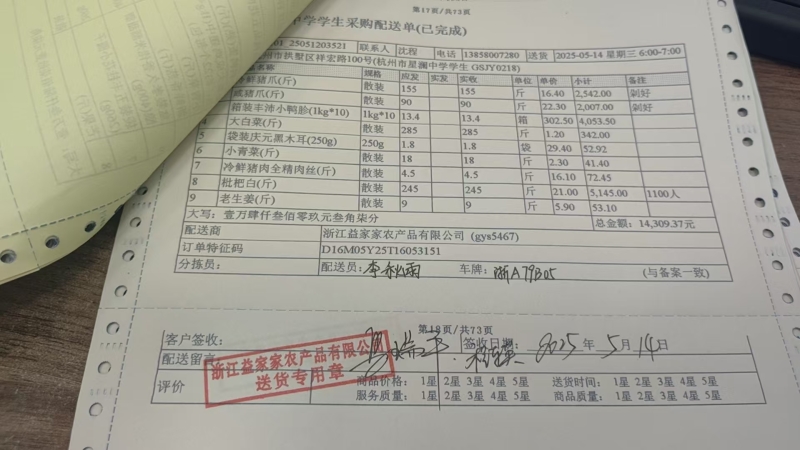 第17页/共73页
中学学生采购配送单(已完成)
01_25051203521 联系人 沈程 电话 13858007280 送货 2025-05-14 星期三 6:00-7:00
州市拱墅区祥宏路100号(杭州市星澜中学学生 GSJY0218)
名称 规格 应发 实发 实收 单位 单价 小计 备注
冷鲜猪爪(斤) 散装 155 155 斤 16.40 2,542.00 剁好
咸猪爪(斤) 散装 90 90 斤 22.30 2,007.00 剁好
箱装丰沛小鸭胗(1kg*10) 1kg*10 13.4 13.4 箱 302.50 4,053.50
4 大白菜(斤) 散装 285 285 斤 1.20 342.00
5 袋装庆元黑木耳(250g) 250g 1.8 1.8 袋 29.40 52.92
6 小青菜(斤) 散装 18 18 斤 2.30 41.40
7 冷鲜猪肉全精肉丝(斤) 散装 4.5 4.5 斤 16.10 72.45
8 枇杷白(斤) 散装 245 245 斤 21.00 5,145.00 1100人
9 老生姜(斤) 散装 9 9 斤 5.90 53.10
大写：壹万肆仟叁佰零玖元叁角柒分 总金额：14,309.37元
配送商 浙江益家家农产品有限公司 (gys5467)
订单特征码 D16M05Y25T16053151
分拣员： 配送员：李秋雨 车牌：浙A79B05 (与备案一致)
第18页/共73页
客户签收： 签收日期： 2025年5月14日
配送留言
浙江益家家农产品有限公司
送货专用章
评价 商品价格： 1星 2星 3星 4星 5星 送货时间： 1星 2星 3星 4星 5星
服务质量： 1星 2星 3星 4星 5星 商品质量： 1星 2星 3星 4星 5星